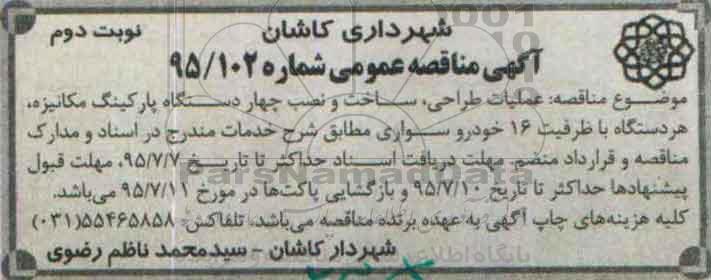 شهرداری کاشان
نوبت دوم
آگهی مناقصه عمومی شماره ۹۵/۱۰۲
موضوع مناقصه: عملیات طراحی، ساخت و نصب چهار دستگاه پارکینگ مکانیزه،
هردستگاه با ظرفیت ۱۶ خودرو سواری مطابق شرح خدمات مندرج در اسناد و مدارک
مناقصه و قرارداد منضم. مهلت دریافت اسناد حداکثر تا تاریخ ۹۵/۷/۷، مهلت قبول
پیشنهادها حداکثر تا تاریخ ۹۵/۷/۱۰ و بازگشایی پاکت‌ها در مورخ ۹۵/۷/۱۱ می‌باشد.
کلیه هزینه‌های چاپ آگهی به عهده برنده مناقصه می‌باشد. تلفاکس: ۵۵۴۶۵۸۵۸(۰۳۱)
شهردار کاشان - سیدمحمد ناظم رضوی
ParsNamadData